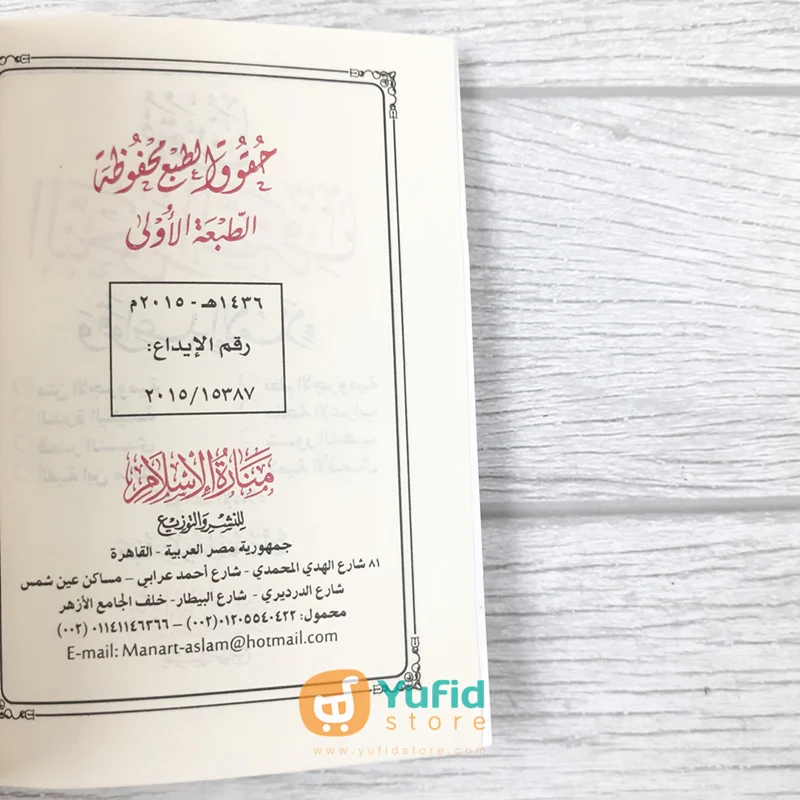 حُقُوقُ الطَّبْعِ مَحْفُوظَة
الطَّبْعَة الأُوْلَى
١٤٣٦هـ - ٢٠١٥م
رقم الإيداع:
٢٠١٥/١٥٣٨٧
مَنَارَةُ الإِسْلَامِ
للنشر والتوزيع
جمهورية مصر العربية - القاهرة
٨١ شارع الهدي المحمدي - شارع أحمد عرابي - مساكن عين شمس
شارع الدرديري - شارع البيطار - خلف الجامع الأزهر
محمول: ٠١٢٠٥٥٤٠٤٢٢(٠٠٢) – ٠١١٤١١٤٦٣٦٦ (٠٠٢)
E-mail: Manart-aslam@hotmail.com
Yufid
store
www.yufidstore.com